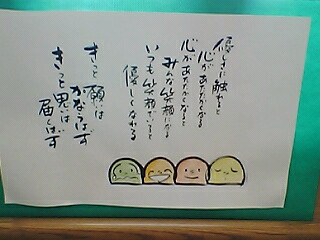 優しさに触れると
心があたたかくなる
心があたたかくなると
みんな笑顔になる
いつも笑顔でいると
優しくなれる
きっと願いは
かなうはず
きっと思いは
届くはず